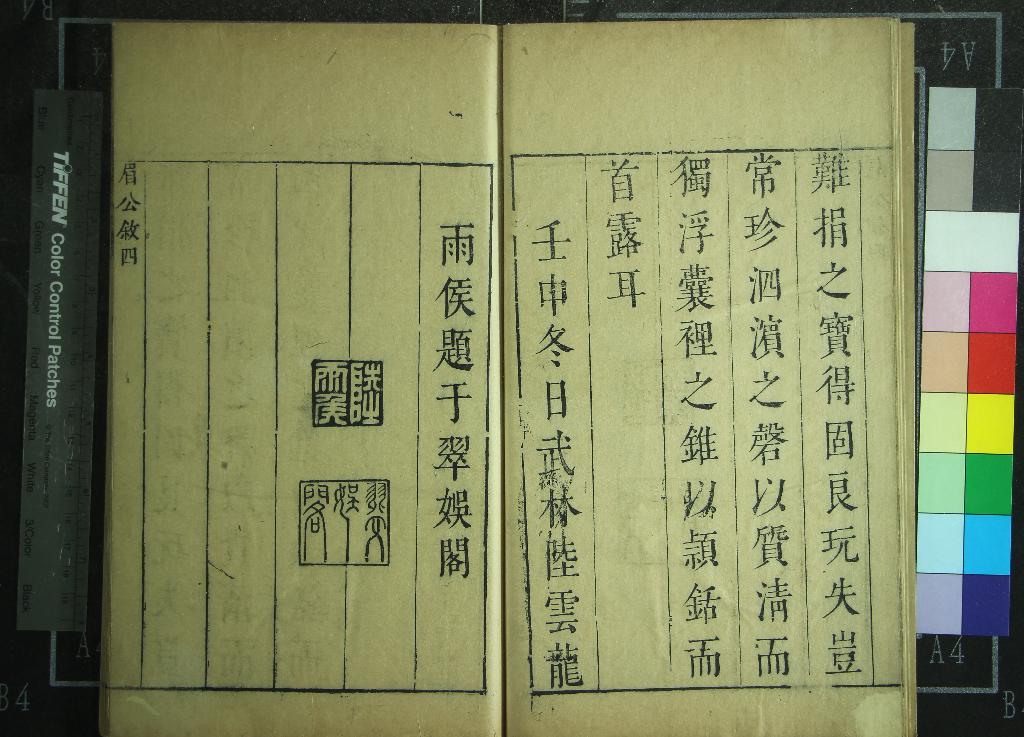 難捐之寶得固艮玩失豈
常珍泗濵之磬以質淸而
獨浮囊裡之錐以頴銛而
首露耳
壬申冬日武林陸雲龍
雨侯題于翠娛閣
陸雨侯
翠娛閣
眉公敘四
TIFFEN Color Control Patches
Blue Cyan Green Yellow Red Magenta White 3/Color Black
A4
A4
A4
A4
B4
B4